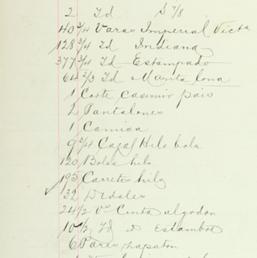 2 Id $ 7/8
40 3/4 Varas Imperial Victa
128 3/4 Id Indiana
377 3/4 Id Estampado
64 2/3 Id Lona
1 Corte Casimir
2 Pantalones
1 Camisa
9 3/4 Hilo bola
120 Bolas hilo
195 Carretes hilo
32 Dedales
24 1/2 Vs Cinta algodon
10 1/2 Id
6 Pares zapaton